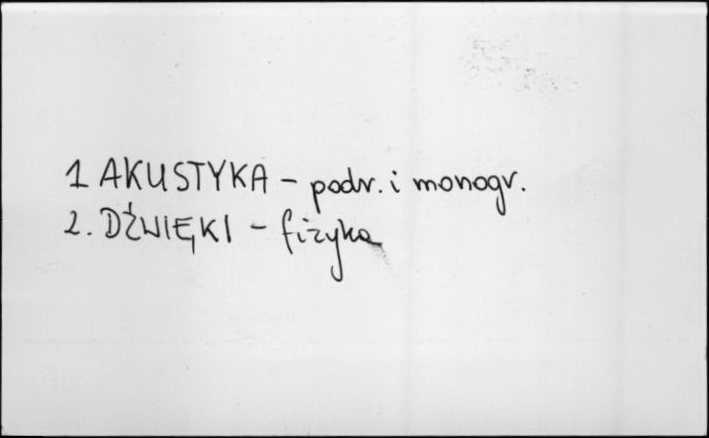 1 AKUSTYKA - podr. i monogr.
2. DŹWIĘKI - fizyka